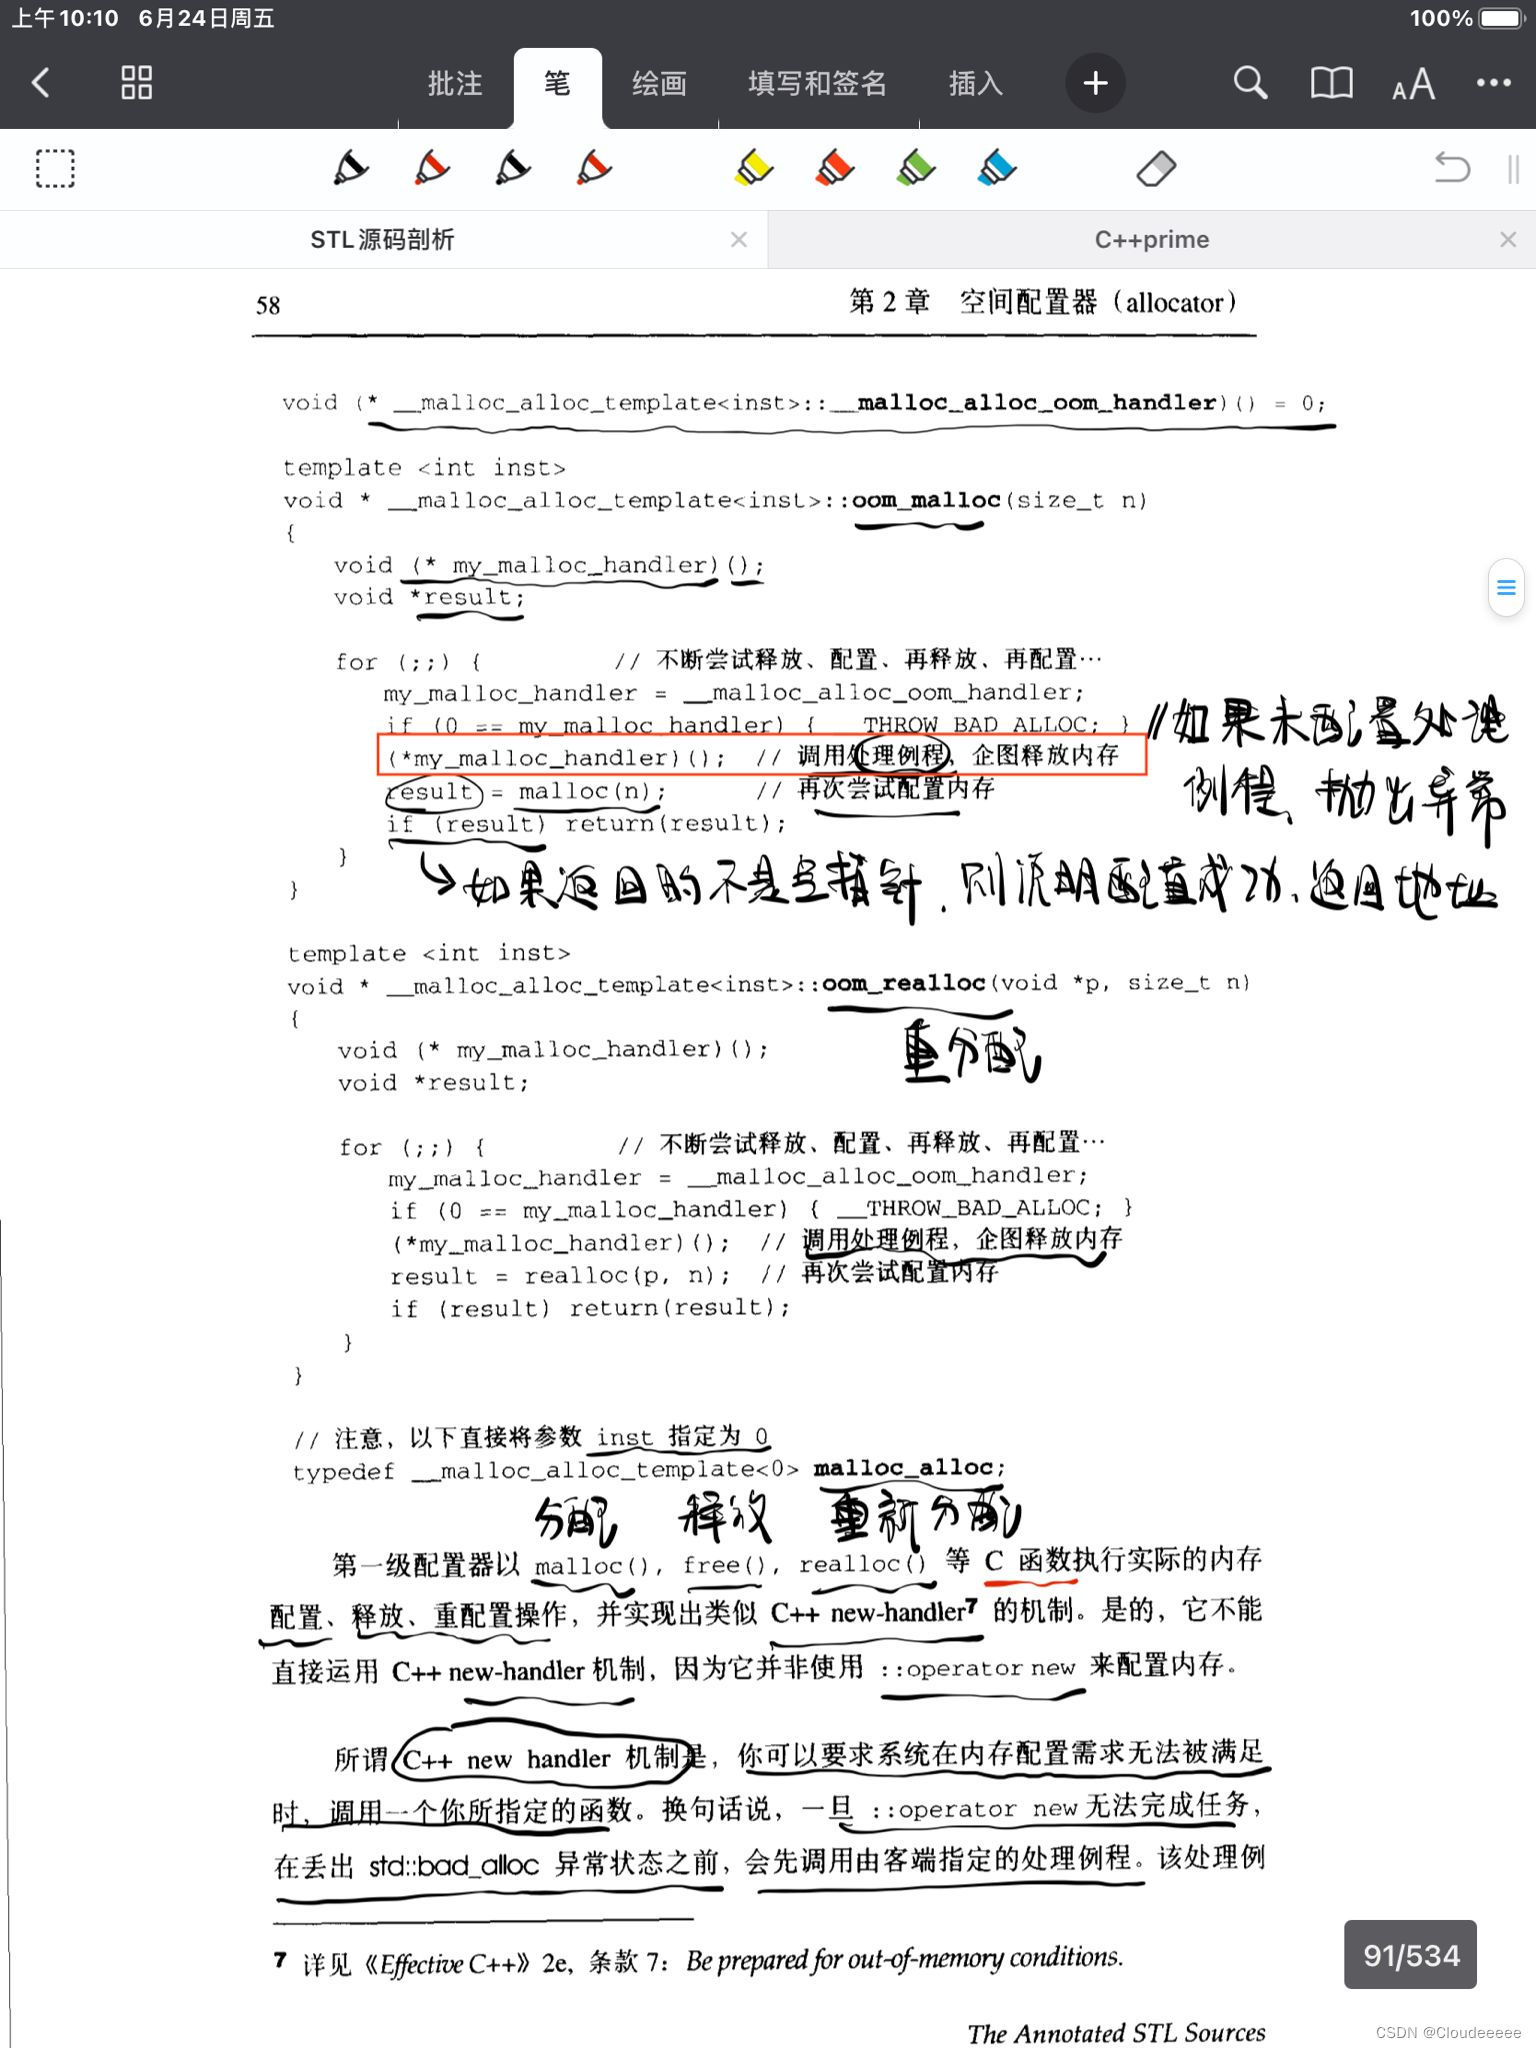 上午10:10 6月24日周五 100%
批注 笔 绘画 填写和签名 插入
STL源码剖析 C++prime
58 第 2 章 空间配置器（allocator）
void (* __malloc_alloc_template<inst>::__malloc_alloc_oom_handler)() = 0;
template <int inst>
void * __malloc_alloc_template<inst>::oom_malloc(size_t n)
{
void (* my_malloc_handler)();
void *result;
for (;;) { // 不断尝试释放、配置、再释放、再配置…
my_malloc_handler = __malloc_alloc_oom_handler;
if (0 == my_malloc_handler) { __THROW_BAD_ALLOC; } //如果未配置处理
(*my_malloc_handler)(); // 调用处理例程，企图释放内存
例程、抛出异常
result = malloc(n); // 再次尝试配置内存
if (result) return(result);
}
如果返回的不是空指针，则说明配置成功、返回地址
}
template <int inst>
void * __malloc_alloc_template<inst>::oom_realloc(void *p, size_t n)
{
重分配
void (* my_malloc_handler)();
void *result;
for (;;) { // 不断尝试释放、配置、再释放、再配置…
my_malloc_handler = __malloc_alloc_oom_handler;
if (0 == my_malloc_handler) { __THROW_BAD_ALLOC; }
(*my_malloc_handler)(); // 调用处理例程，企图释放内存
result = realloc(p, n); // 再次尝试配置内存
if (result) return(result);
}
}
// 注意，以下直接将参数 inst 指定为 0
typedef __malloc_alloc_template<0> malloc_alloc;
分配 释放 重新分配
第一级配置器以 malloc(), free(), realloc() 等 C 函数执行实际的内存
配置、释放、重配置操作，并实现出类似 C++ new-handler7 的机制。是的，它不能
直接运用 C++ new-handler 机制，因为它并非使用 ::operator new 来配置内存。
所谓 C++ new handler 机制是，你可以要求系统在内存配置需求无法被满足
时，调用一个你所指定的函数。换句话说，一旦 ::operator new 无法完成任务，
在丢出 std::bad_alloc 异常状态之前，会先调用由客端指定的处理例程。该处理例
7 详见《Effective C++》2e, 条款 7: Be prepared for out-of-memory conditions.
91/534
The Annotated STL Sources
CSDN @Cloudeeeee